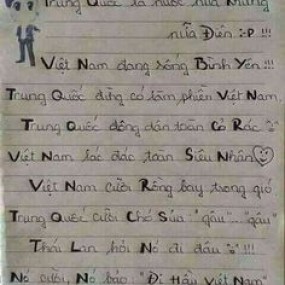 Trung Quốc là nước nửa Khùng
nửa Điên :P !!!
Việt Nam đang sống Bình Yên !!!
Trung Quốc đừng có làm phiền Việt Nam.
Trung Quốc đông dân toàn Cỏ Rác
Việt Nam lác đác toàn Siêu Nhân
Việt Nam cưỡi Rồng bay trong gió
Trung Quốc cưỡi Chó Sủa "gâu".."gâu"
Thái Lan hỏi Nó đi đâu !!!
Nó cười, Nó bảo "Đi Hầu Việt Nam"